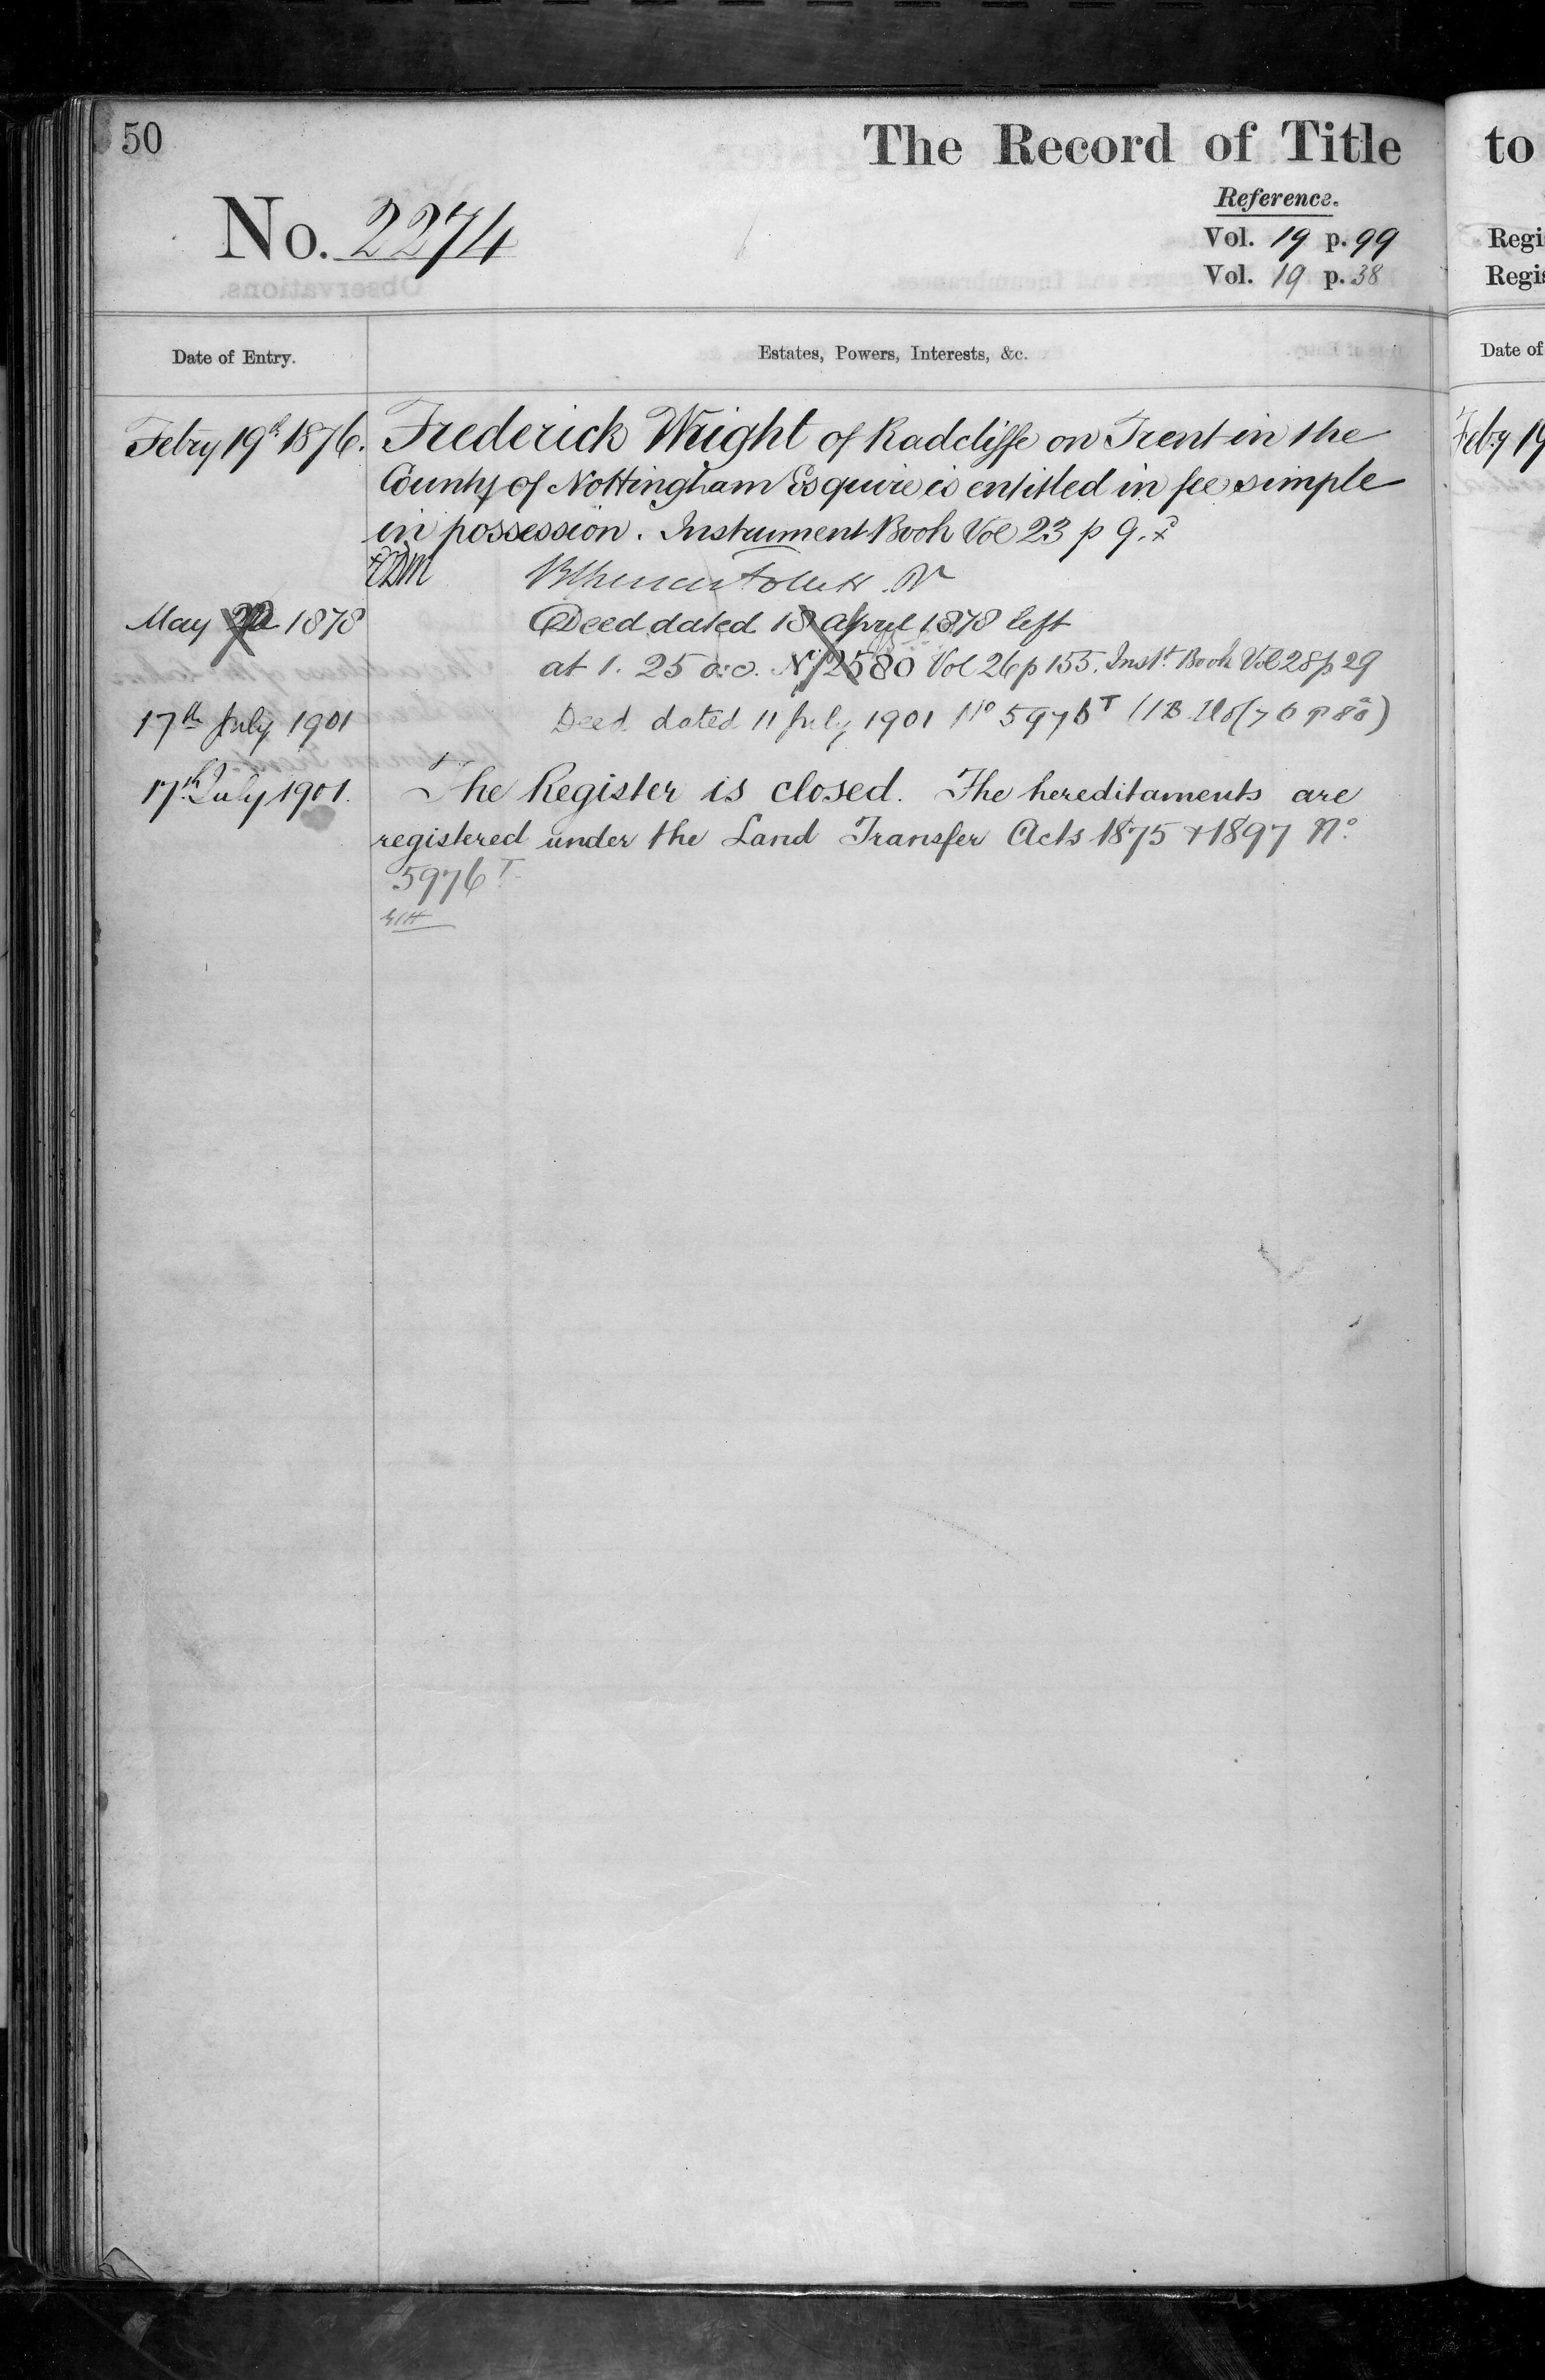 50
The Record of Title
No. 2274
Reference.
Vol. 19 p. 99
Vol. 19 p. 38
Date of Entry.
Estates, Powers, Interests, &c.
Febry 19th 1876.
Frederick Wright of Radcliffe on Trent in the
County of Nottingham Esquire is entitled in fee simple
in possession. Instrument Book Vol 23 p 9.
May 1878
Deed dated 18 April 1878 left
at 1. 25 No 2580 Vol 26 p 155. Inst. Book Vol 28 p 29
17th July 1901
Deed dated 11 July 1901 No 5976 T
17th July 1901.
The Register is closed. The hereditaments are
registered under the Land Transfer Acts 1875 & 1897 No
5976 T
to
Regi
Regis
Date of
Feby 19